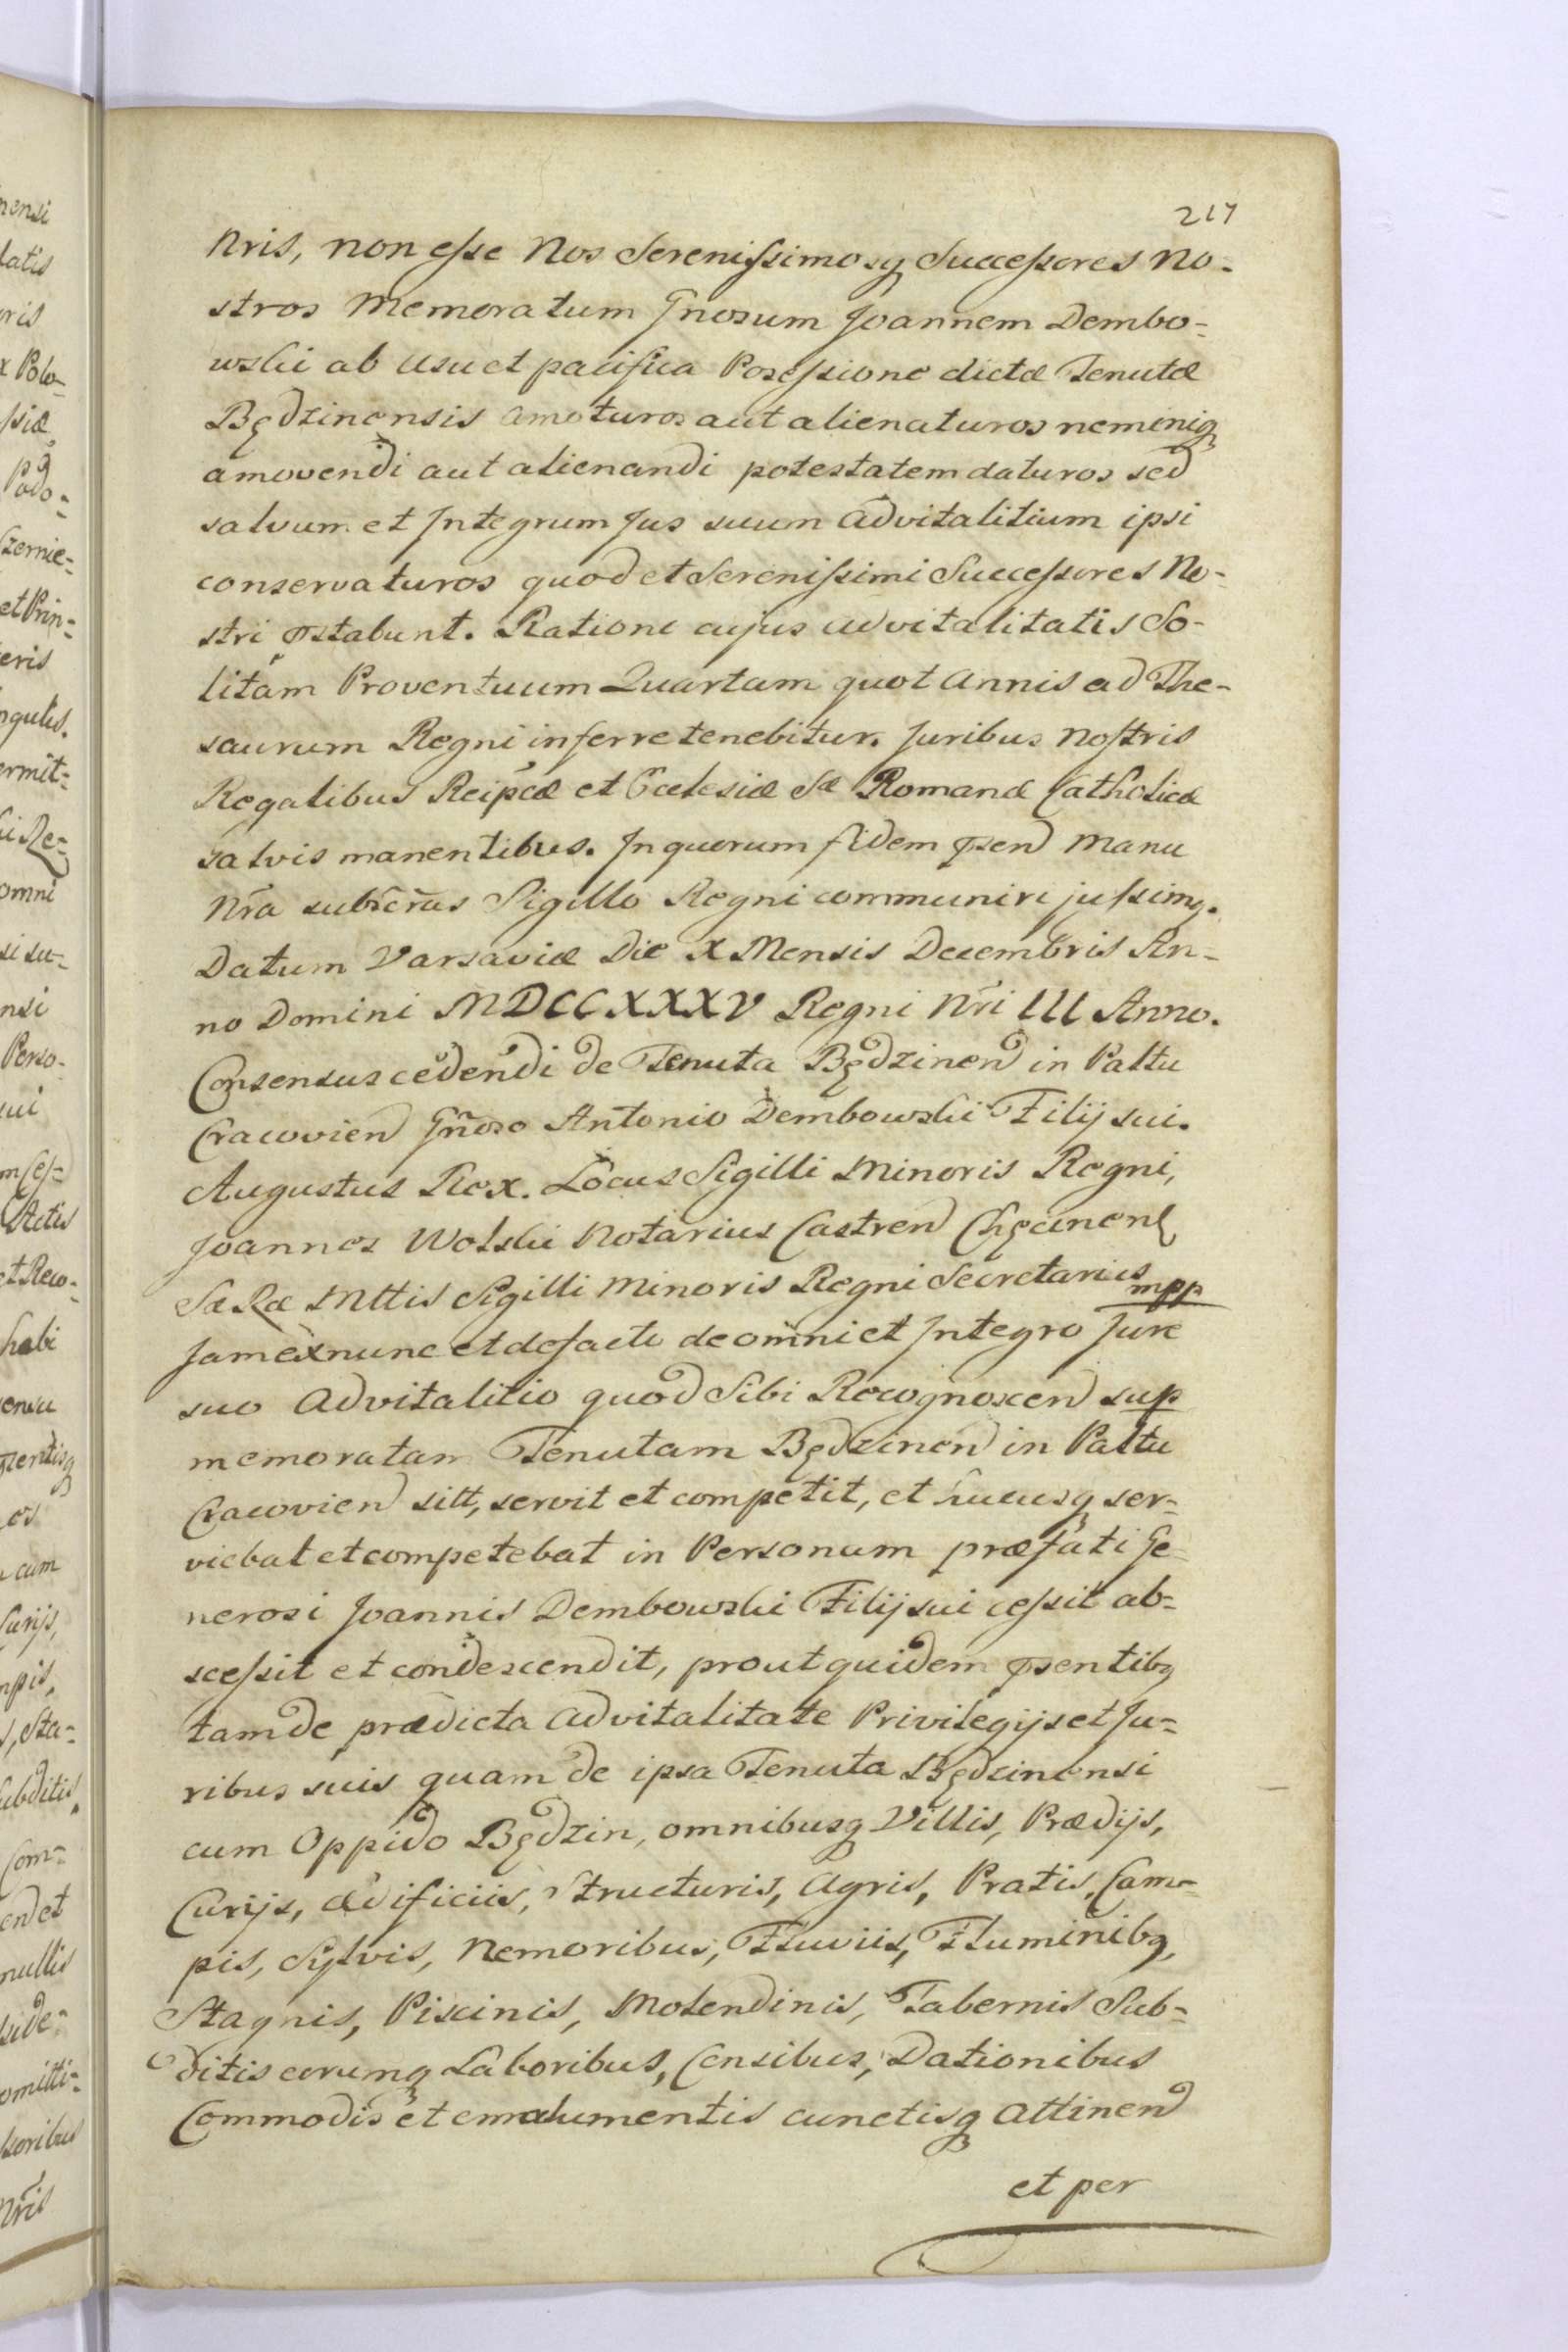 217
Nris, non esse Nos Serenissimosq Successores No-
stros Memoratum Gnosum Joannem Dembo-
wski ab usu et pacifica Posessione dictæ Tenutæ
Będzinensis amoturos aut alienaturos neminiq
amovendi aut alienandi potestatem daturos sed
salvum et Integrum Jus suum advitalitium ipsi
conservaturos quod et Serenissimi Successores No-
stri pstabunt. Ratione cujus advitalitatis So-
litam Proventuum Quartam quot Annis ad The-
saurum Regni inferre tenebitur. Juribus Nostris
Regalibus Reipcæ et Ecclesiæ Sæ Romanæ Catholicæ
salvis manentibus. In quorum fidem psen Manu
Nra subscras Sigillo Regni communiri jussimq.
Datum Varsaviæ Die X Mensis Decembris An-
no Domini MDCCXXXV Regni Nri III Anno.
Consensus cedendi de Tenuta Będzinen in Pattu
Cracovien Gnoso Antonio Dembowski Filij sui.
Augustus Rex. Locus Sigilli Minoris Regni,
Joannes Wolski Notarius Castren Chęcinen
Sæ Ræ Mttis Sigilli Minoris Regni Secretarius mpp
Jam ex nunc et de facto de omni et Integro Jure
suo Advitalitio quod Sibi Recognoscen sup
memoratam Tenutam Będzinen in Pattu
Cracovien sitt, servit et competit, et hucusq ser-
viebat et competebat in Personam præfati Ge-
nerosi Joannis Dembowski Filij sui cessit ab-
scessit et condescendit, prout quidem psentibq
tam de prædicta Advitalitate Privilegijs et Ju-
ribus suis quam de ipsa Tenuta Będzinensi
cum Oppido Będzin, omnibusq Villis, Prædijs,
Curijs, ædificiis, Structuris, Agris, Pratis, Cam-
pis, Sylvis, Nemoribus, Fluviis, Fluminibq,
Stagnis, Piscinis, Molendinis, Tabernis Sub-
ditis eorumq Laboribus, Censibus, Dationibus
Commodis et emolumentis cunctisq Attinen
et per